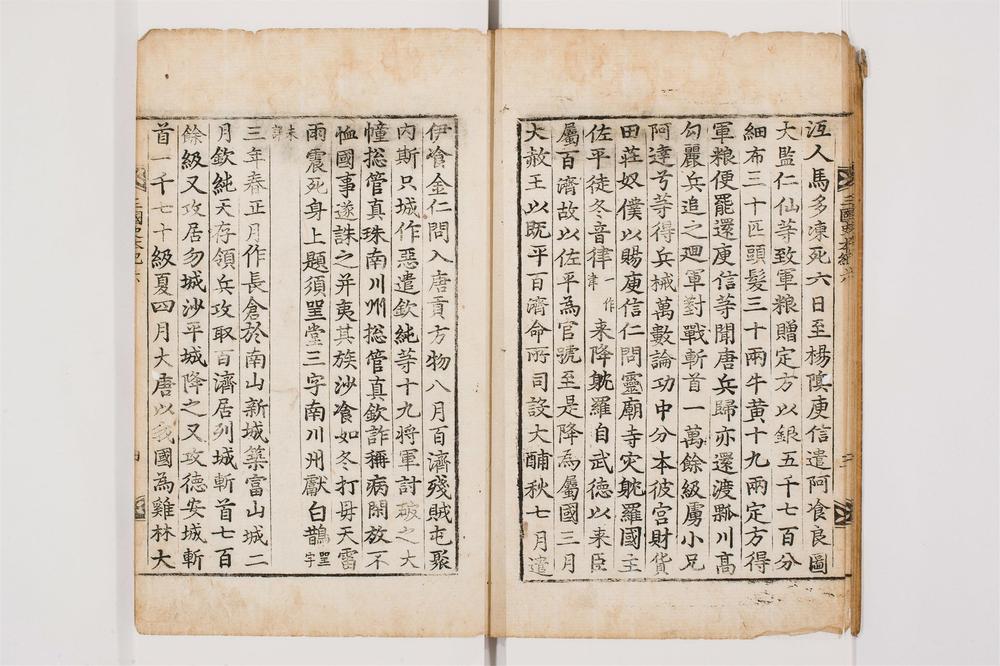 冱人馬多凍死六日至楊隩庾信遣阿飡良圖
大監仁仙等致軍粮贈定方以銀五千七百分
細布三十匹頭髮三十兩牛黄十九兩定方得
軍粮便罷還庾信等聞唐兵歸亦還渡䕯川高
勾麗兵追之廻軍對戰斬首一萬餘級虜小兄
阿達兮等得兵械萬數論功中分本彼宮財貨
田荘奴僕以賜庾信仁問靈廟寺灾躭羅國主
佐平徒冬音律一作津来降躭羅自武德以来臣
屬百濟故以佐平為官號至是降為屬國三月
大赦王以既平百濟命所司設大酺秋七月遣
伊飡金仁問入唐貢方物八月百濟殘賊屯聚
内斯只城作惡遣欽純等十九将軍討破之大
幢捴管真珠南川州捴管真欽詐稱病閑放不
恤國事遂誅之并夷其族沙飡如冬打母天雷
雨震死身上題須㘸堂三字南川州獻白鵲㘸字
未詳
三年春正月作長倉於南山新城築富山城二
月欽純天存領兵攻取百濟居列城斬首七百
餘級又攻居勿城沙平城降之又攻德安城斬
首一千七十級夏四月大唐以我國為雞林大